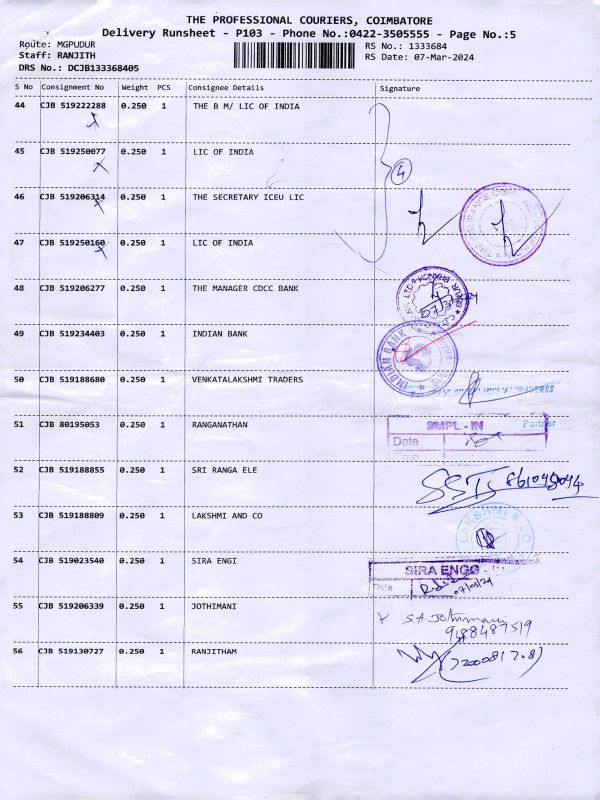 THE PROFESSIONAL COURIERS, COIMBATORE
Delivery Runsheet - P103 - Phone No.:0422-3505555 - Page No.:5
Route: MGPUDUR RS No.: 1333684
Staff: RANJITH RS Date: 07-Mar-2024
DRS No.: DCJB133368405
S No Consignment No Weight PCS Consignee Details Signature
44 CJB 519222288 0.250 1 THE B M/ LIC OF INDIA
45 CJB 519250077 0.250 1 LIC OF INDIA
4
46 CJB 519206314 0.250 1 THE SECRETARY ICEU LIC
47 CJB 519250160 0.250 1 LIC OF INDIA
48 CJB 519206277 0.250 1 THE MANAGER CDCC BANK
49 CJB 519234403 0.250 1 INDIAN BANK
INDIAN BANK
50 CJB 519188680 0.250 1 VENKATALAKSHMI TRADERS
For
51 CJB 80195053 0.250 1 RANGANATHAN
SMPL - IN Partner
Date
52 CJB 519188855 0.250 1 SRI RANGA ELE
53 CJB 519188809 0.250 1 LAKSHMI AND CO
LAKSHMI & CO
54 CJB 519023540 0.250 1 SIRA ENGI
SIRA ENGG - IN
Date
07/03/24
55 CJB 519206339 0.250 1 JOTHIMANI
S.A. Jothimani
9188487519
56 CJB 519130727 0.250 1 RANJITHAM